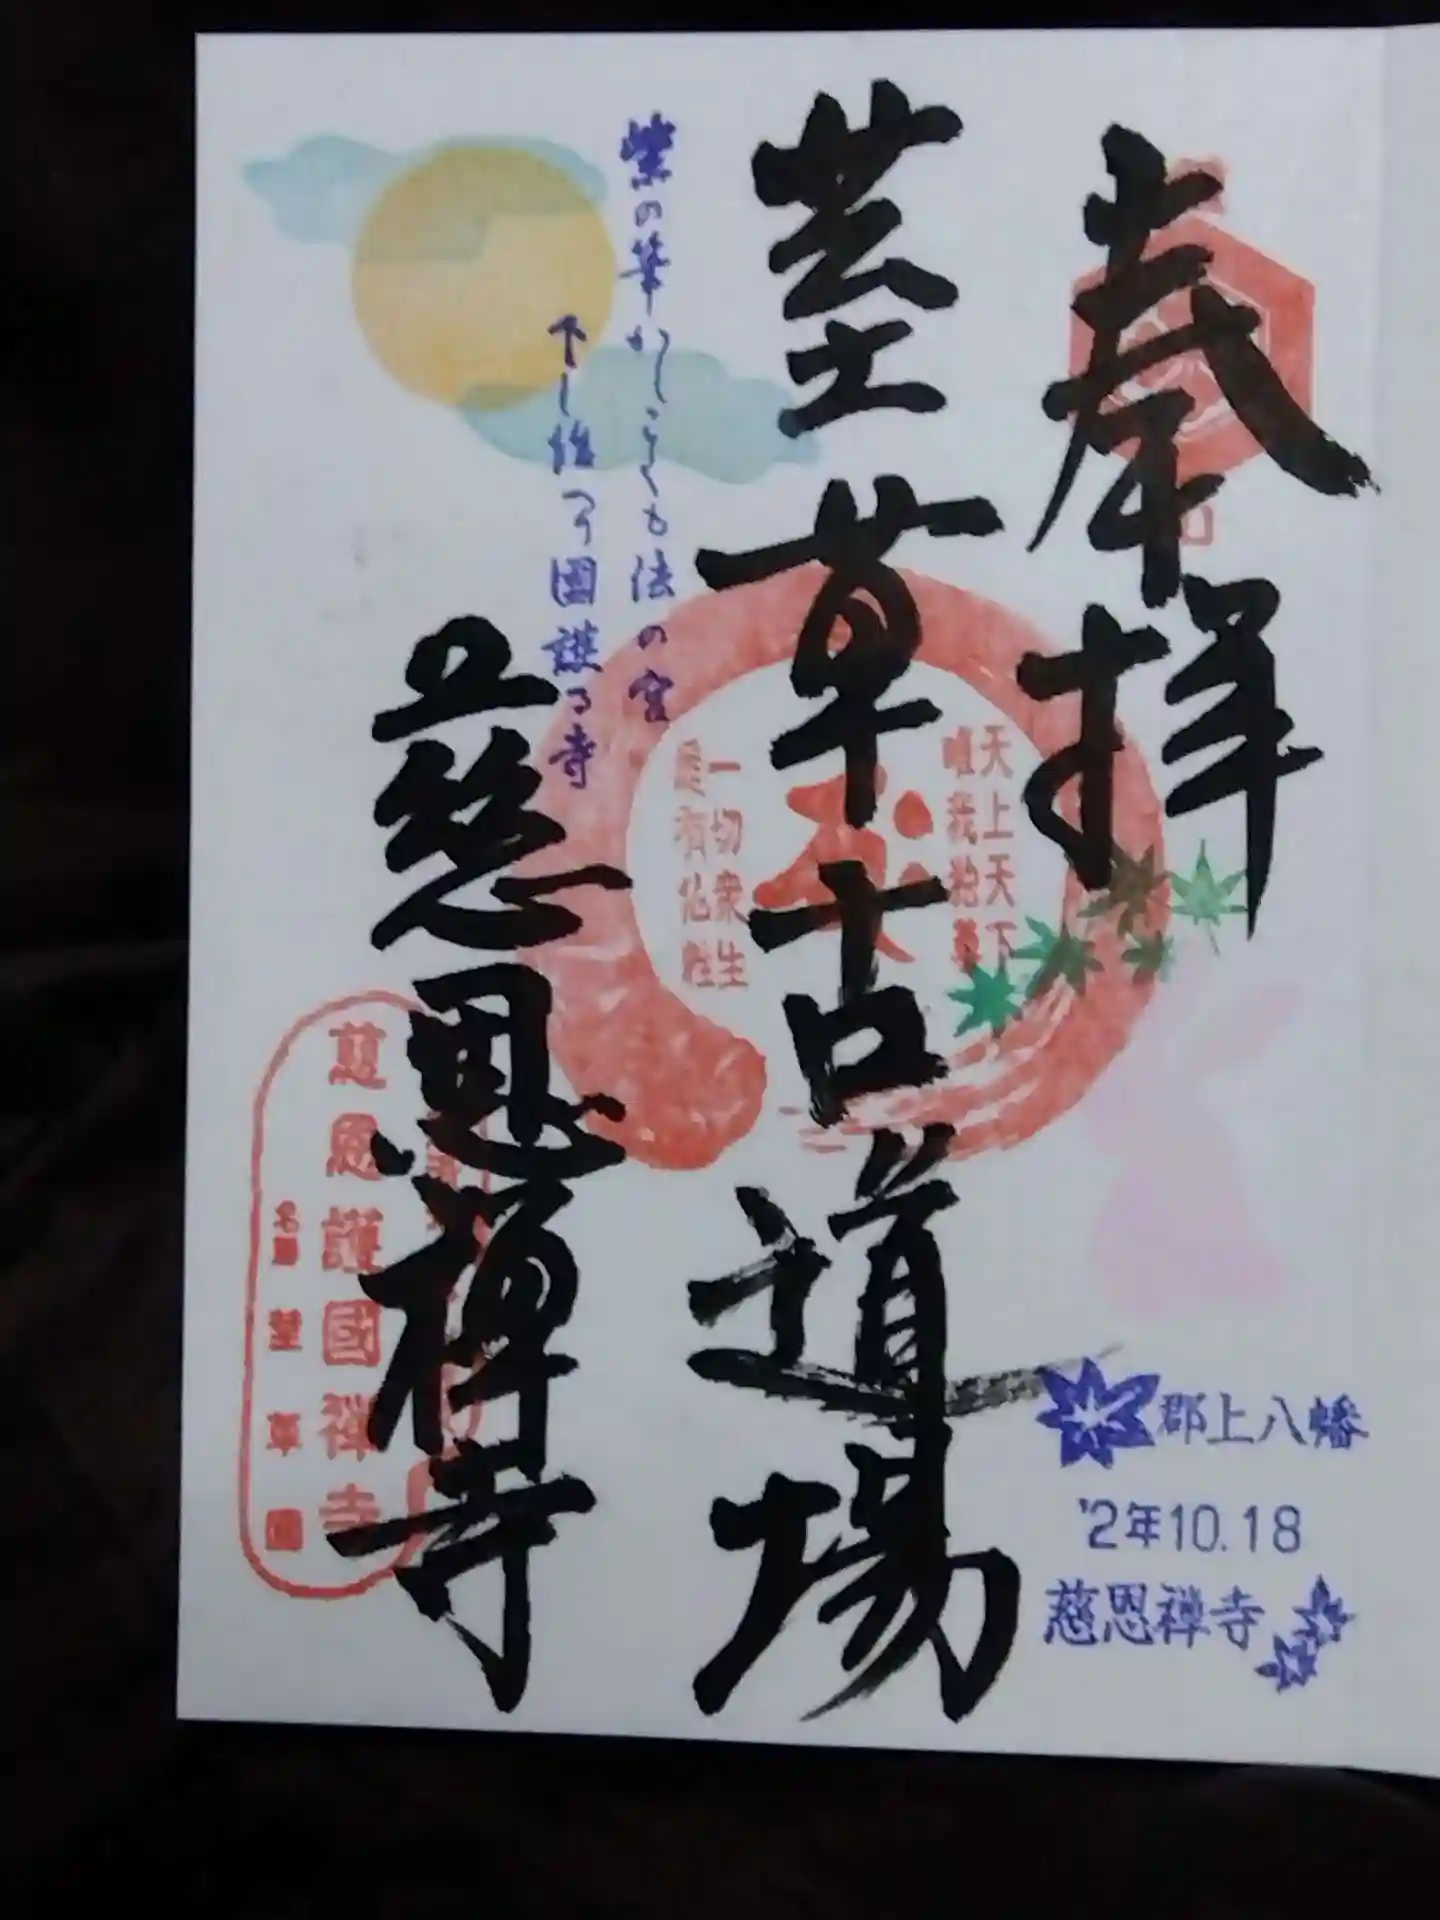 奉拝
荎草古道場
慈恩禅寺
紫の筆かしこくも法の宮
下し給う国護る寺
天上天下
唯我独尊
一切衆生
悉有仏性
慈恩護國禅寺
名勝 荎草園
郡上八幡
'2年10.18
慈恩禅寺